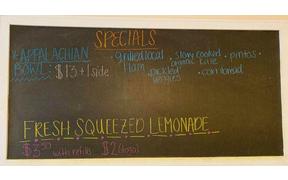 SPECIALS
* APPALACHIAN BOWL: $13 + 1 side
· grilled local Ham
· slow cooked organic kale
· pintos
· pickled veggies
· cornbread
FRESH SQUEEZED LEMONADE
$3.50 with refills $2 (togo)